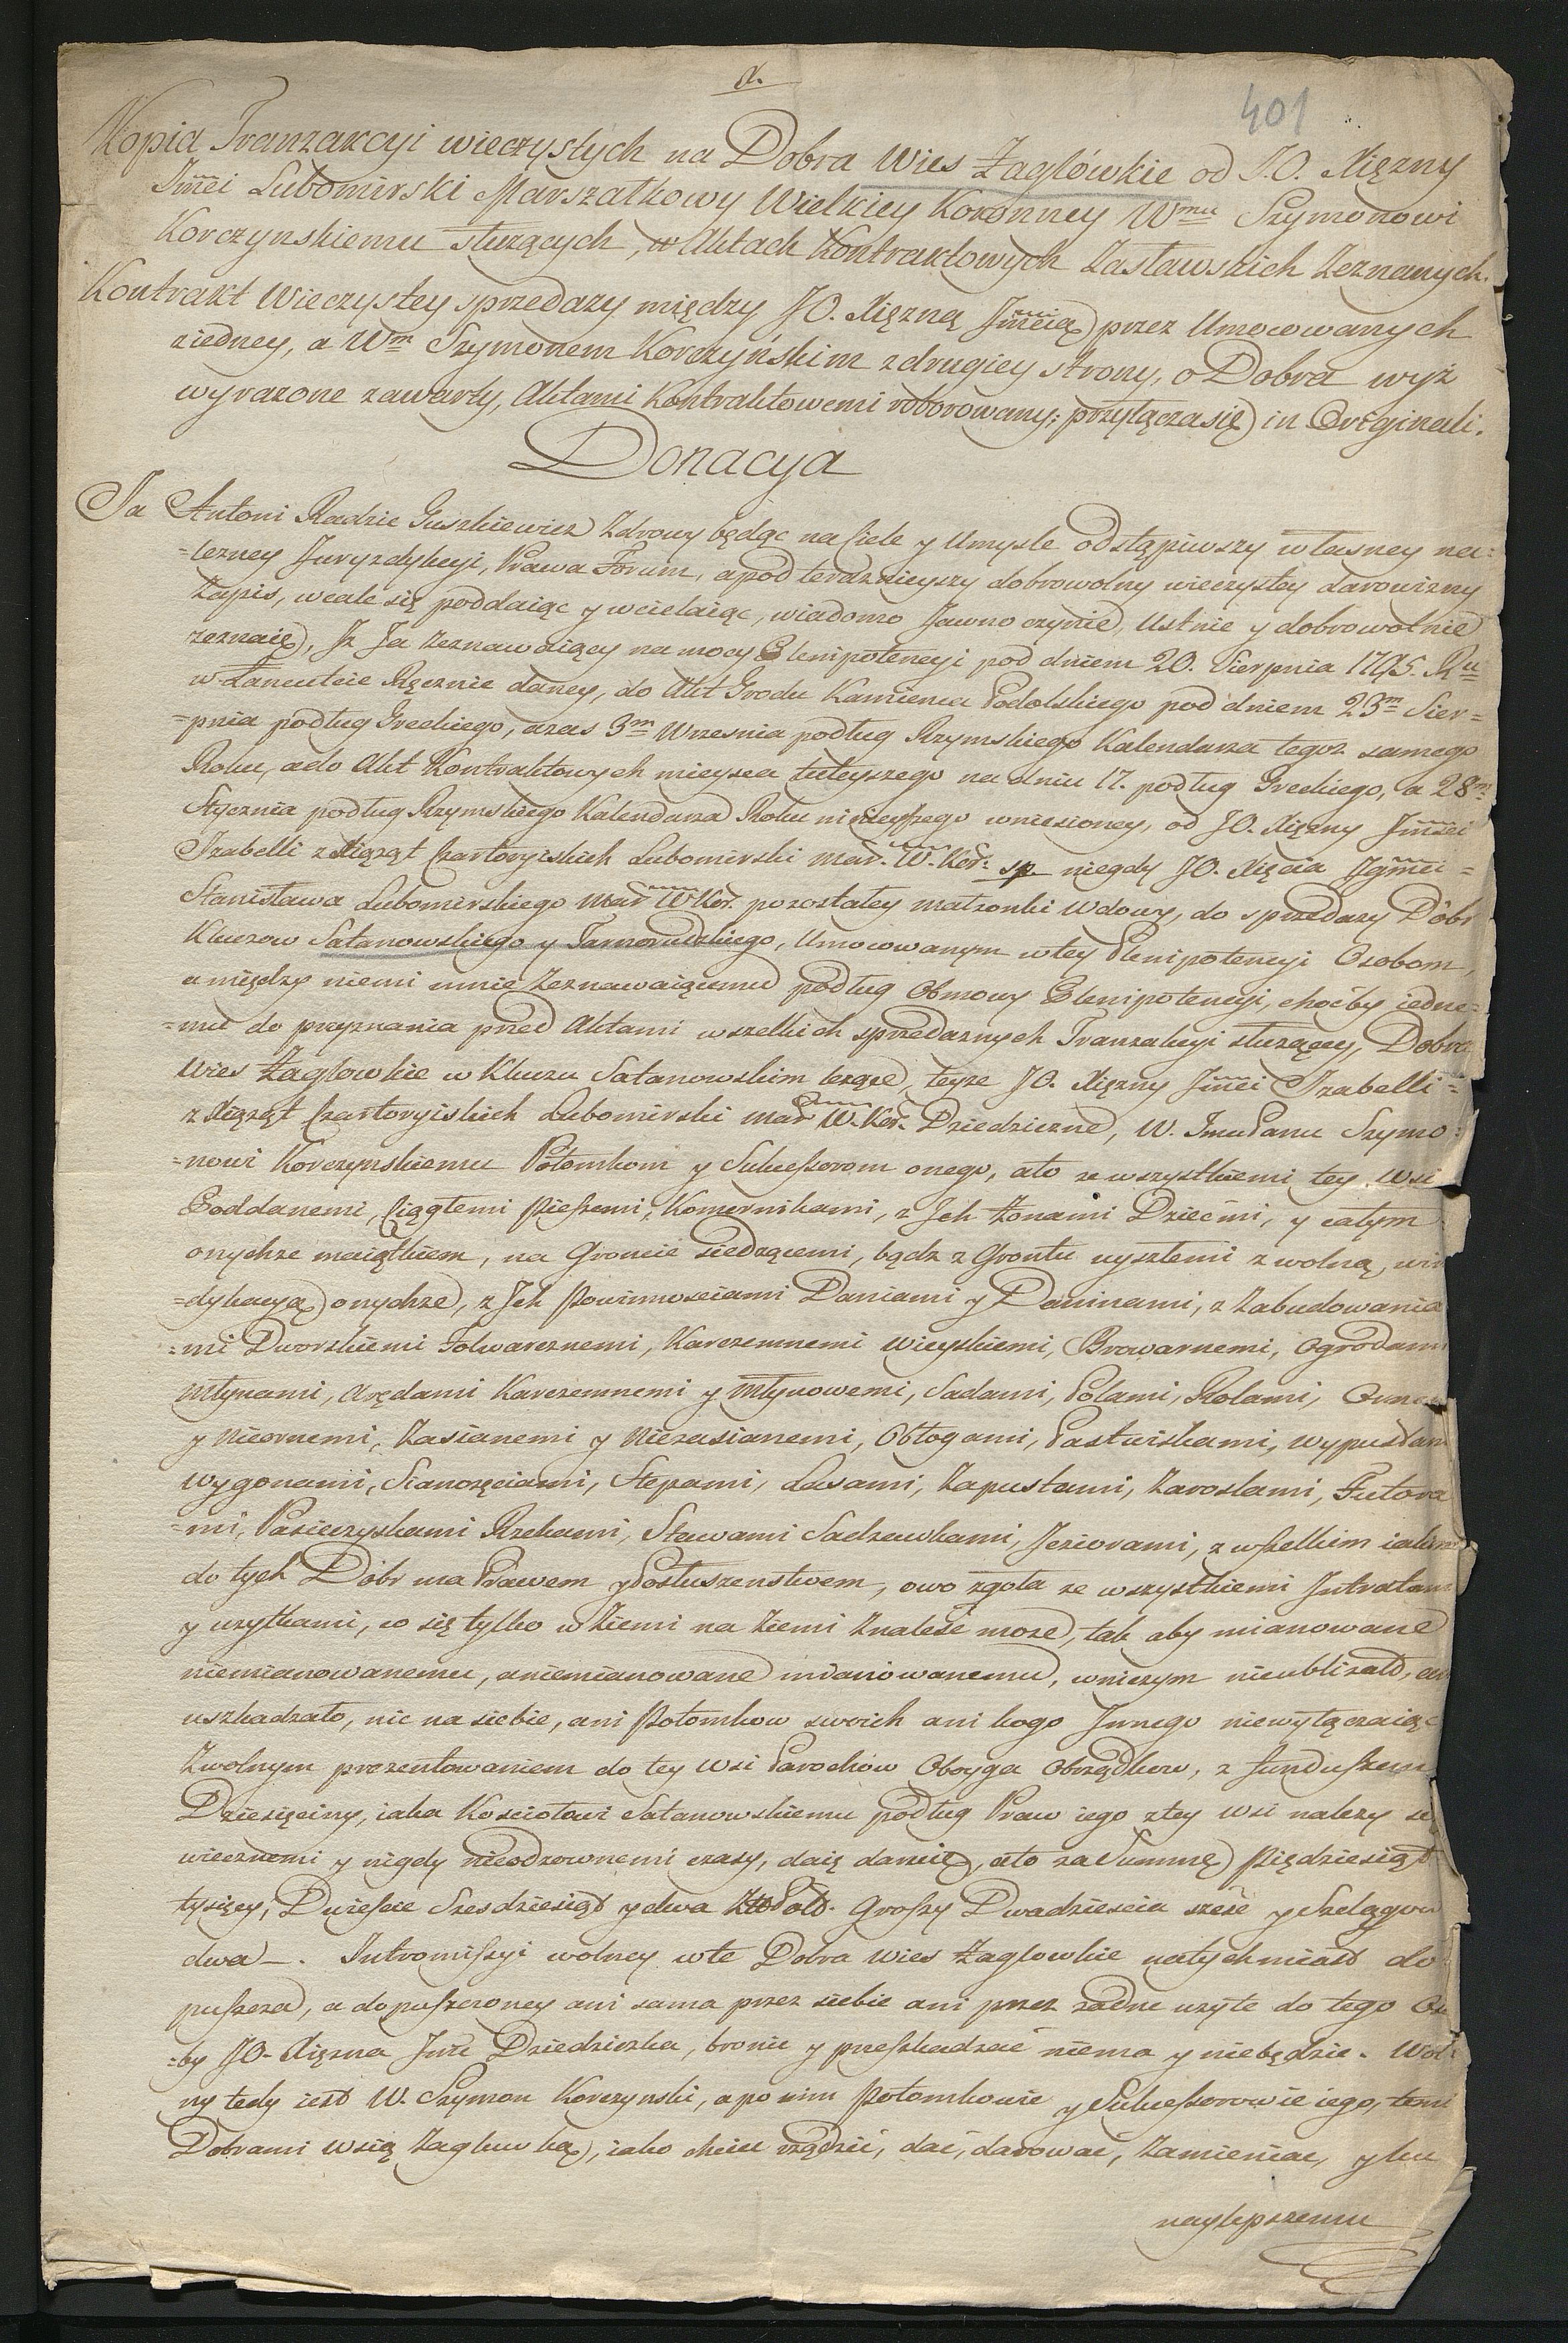 d.
401
Kopia Tranzakcyi wieczystych na Dobra Wies Zaglówkie od J.O. Xięzny
Jmci Lubomirski Marszałkowy Wielkiey Koronney Wmu Szymonowi
Korczynskiemu służących, w Aktach Kontraktowych Zasławskich Zeznanych.
Kontrakt Wieczystey sprzedazy między JO. Xięzną Jmcią przez Umocowanych
ziedney, a Wm Szymonem Korczyńskim zdrugiey strony, o Dobra wyż
wyrazone zawarty, Aktami Kontraktowemi roborowany; przyłącza się in Originali.
Donacya
Ja Antoni Radzic Guszkiewicz Zdrowy będąc na Ciele y Umysle odstąpiwszy własney na=
=lezney Juryzdykcyi, Prawa Forum, apod teraznieyszy dobrowolny wieczystey darowizny
Zapis, wcale się poddaiąc y wcielaiąc, wiadomo Jawno czynię, Ustnie y dobrowolnie
zeznaię, Jż Ja Zeznawaiący na mocy Plenipotencyi pod dniem 20. Sierpnia 1795. Ru
w Łancucie Ręcznie daney, do Akt Grodu Kamienca Podolskiego pod dniem 23m Sier=
=pnia podług Greckiego, azas 3m Wrzesnia podług Rzymskiego Kalendarza tegoz samego
Roku, ado Akt Kontraktowych mieysca tuteyszego na dniu 17. podług Greckiego, a 28m
Stycznia podług Rzymskiego Kalendarza Roku ninieyszego wniesioney, od JO. Xięzny Jmsci
Izabelli z Xiążąt Czartoryiskich Lubomirski Mar. W. Kor: sp niegdy JO. Xięcia Jgmci=
Stanisława Lubomirskiego Mar W Kor. pozostałey małzonki Wdowy, do sprzedazy Dóbr
Kluczow Satanowskiego y Tarnorudzkiego, Umocowanym wtey Plenipotencyi Osobom,
a między niemi mnie Zeznawaiącemu podług Obmowy Plenipotencyi, choćby iedne=
=mu do przyznania przed Aktami wszelkich sprzedaznych Tranzakcyi słuzącey, Dobra
Wies Zaglowkie w Kluczu Satanowskim lezące, teyze JO. Xięzny Jmci Izabelli=
z Xiążąt Czartoryiskich Lubomirski Mar W. Kor. Dziedziczne, W. Jmu Panu Szymo=
=nowi Korczynskiemu Potomkom y Sukcessorom onego, ato ze wszystkiemi tey Wsi
Poddanemi, Ciągłemi Pieszemi, Komornikami, z Jch Zonami Dziećmi, y całym
onychze maiątkiem, na Groncie siedzącemi, bądz z Grontu uyszłemi z wolną, win
=dykacyą onychze, z Jch Powinnosciami Daniami y Daninami, z Zabudowania
=mi Dworskiemi Folwarcznemi, Karczemnemi Wieyskiemi, Browarnemi, Ogrodami
Młynami, Arędami Karczemnemi y Młynowemi, Sadami, Polami, Rolami, Orne
y Nieornemi, Zasianemi y Niezasianemi, Obłogami, Pastwiskami, wypustam
wygonami, Sianozęciami, Stepami, Lasami, Zapustami, Zaroslami, Futora
=mi, Pasieczyskami Rzekami, Stawami Sadzawkami, Jeziorami, z wszelkim iakim
do tych Dóbr ma Prawem y Posłuszenstwem, owo zgoła ze wszystkiemi Jntratam
y uzytkami, co się tylko w Ziemi na Ziemi Znaleść moze, tak aby mianowane
niemianowanemu, aniemianowane mianowanemu, wniczym nieublizało, an
uszkadzało, nic na siebie, ani Potomkow swoich ani kogo Jnnego niewyłączaiąc
Zwolnym prezentowaniem do tey Wsi Parochów Oboyga Obrządkow, z funduszem
Dziesięciny, iaka Kosciołowi Satanowskiemu podług Praw iego ztey wsi nalezy się
wiecznemi y nigdy nieodzownemi czasy, daię daruię, ato za Summę Pięćdziesiąt
tysięcy, Dwiescie Szesdziesiąt y dwa Zło Pols. Groszy Dwadziescia szesc y Szelągow
dwa_. Jntromissyi wolney wte Dobra Wies Zaglowkie natychmiast do
puszcza, a dopuszczoney ani sama przez siebie ani przez zadne uzyte do tego Oso
=by JO. Xięzna Jmć Dziedziczka, bronic y przeszkadzać niema y niebędzie. Wol=
ny tedy iest W. Szymon Korczynski, apo nim Potomkowie y Sukcessorowie iego, temi
Dobrami Wsią Zaglowką, iako chcieć rządzić, dać, darować, Zamieniac, y ku
naylepszemu